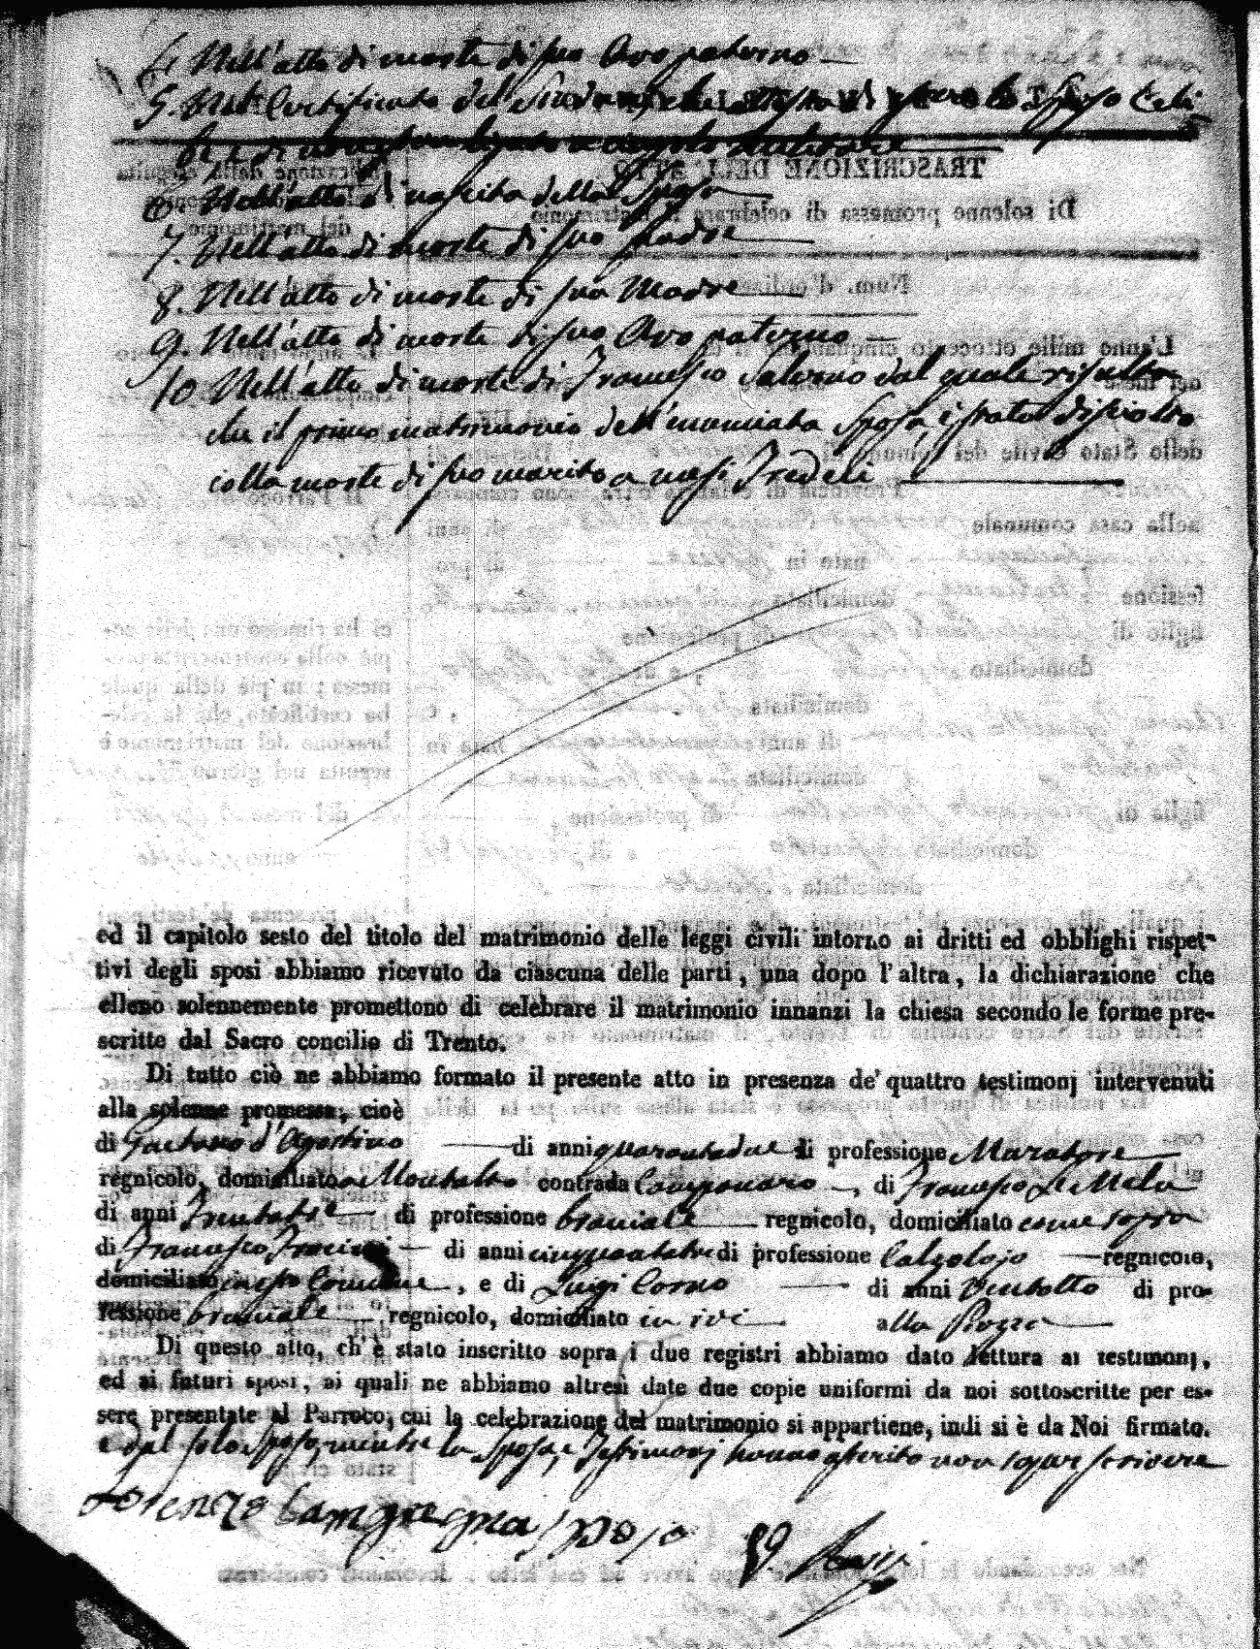 4. Nell'atto di morte di suo Avo paterno
5. Nel Certificato del Sindaco, che attesta di essere lo Sposo Celi
be, e di non
6. Nell'atto di nascita della Sposa
7. Nell'atto di morte di suo padre
8. Nell'atto di morte di sua Madre
9. Nell'atto di morte di suo Avo paterno
10 Nell'atto di morte di Francesco Salerno dal quale risulta
che il primo matrimonio dell'enunciata Sposa, è stato disciolto
colla morte di suo marito a mesi Tredeci
ed il capitolo sesto del titolo del matrimonio delle leggi civili intorno ai dritti ed obblighi rispet-
tivi degli sposi abbiamo ricevuto da ciascuna delle parti, una dopo l'altra, la dichiarazione che
elleno solennemente promettono di celebrare il matrimonio innanzi la chiesa secondo le forme pre-
scritte dal Sacro concilio di Trento.
Di tutto ciò ne abbiamo formato il presente atto in presenza de' quattro testimonj intervenuti
alla solenne promessa, cioè
di Gaetano d'Agostino di anni quarantadue di professione Muratore
regnicolo, domiciliato a Montalto contrada Camponaro, di Francesco
di anni Trentatre di professione braciale regnicolo, domiciliato come sopra
di Francesco di anni cinquantatre di professione Calzolajo regnicolo,
domiciliato in esso Comune, e di Luigi Corno di anni Ventotto di pro-
fessione braciale, regnicolo, domiciliato in ivi alla
Di questo atto, ch'è stato inscritto sopra i due registri abbiamo dato lettura ai testimonj,
ed ai futuri sposi, ai quali ne abbiamo altresì date due copie uniformi da noi sottoscritte per es-
sere presentate al Parroco, cui la celebrazione del matrimonio si appartiene, indi si è da Noi firmato.
e dal solo Sposo, mentre la Sposa, e Testimonj hanno asserito non saper scrivere
Lorenzo sposo